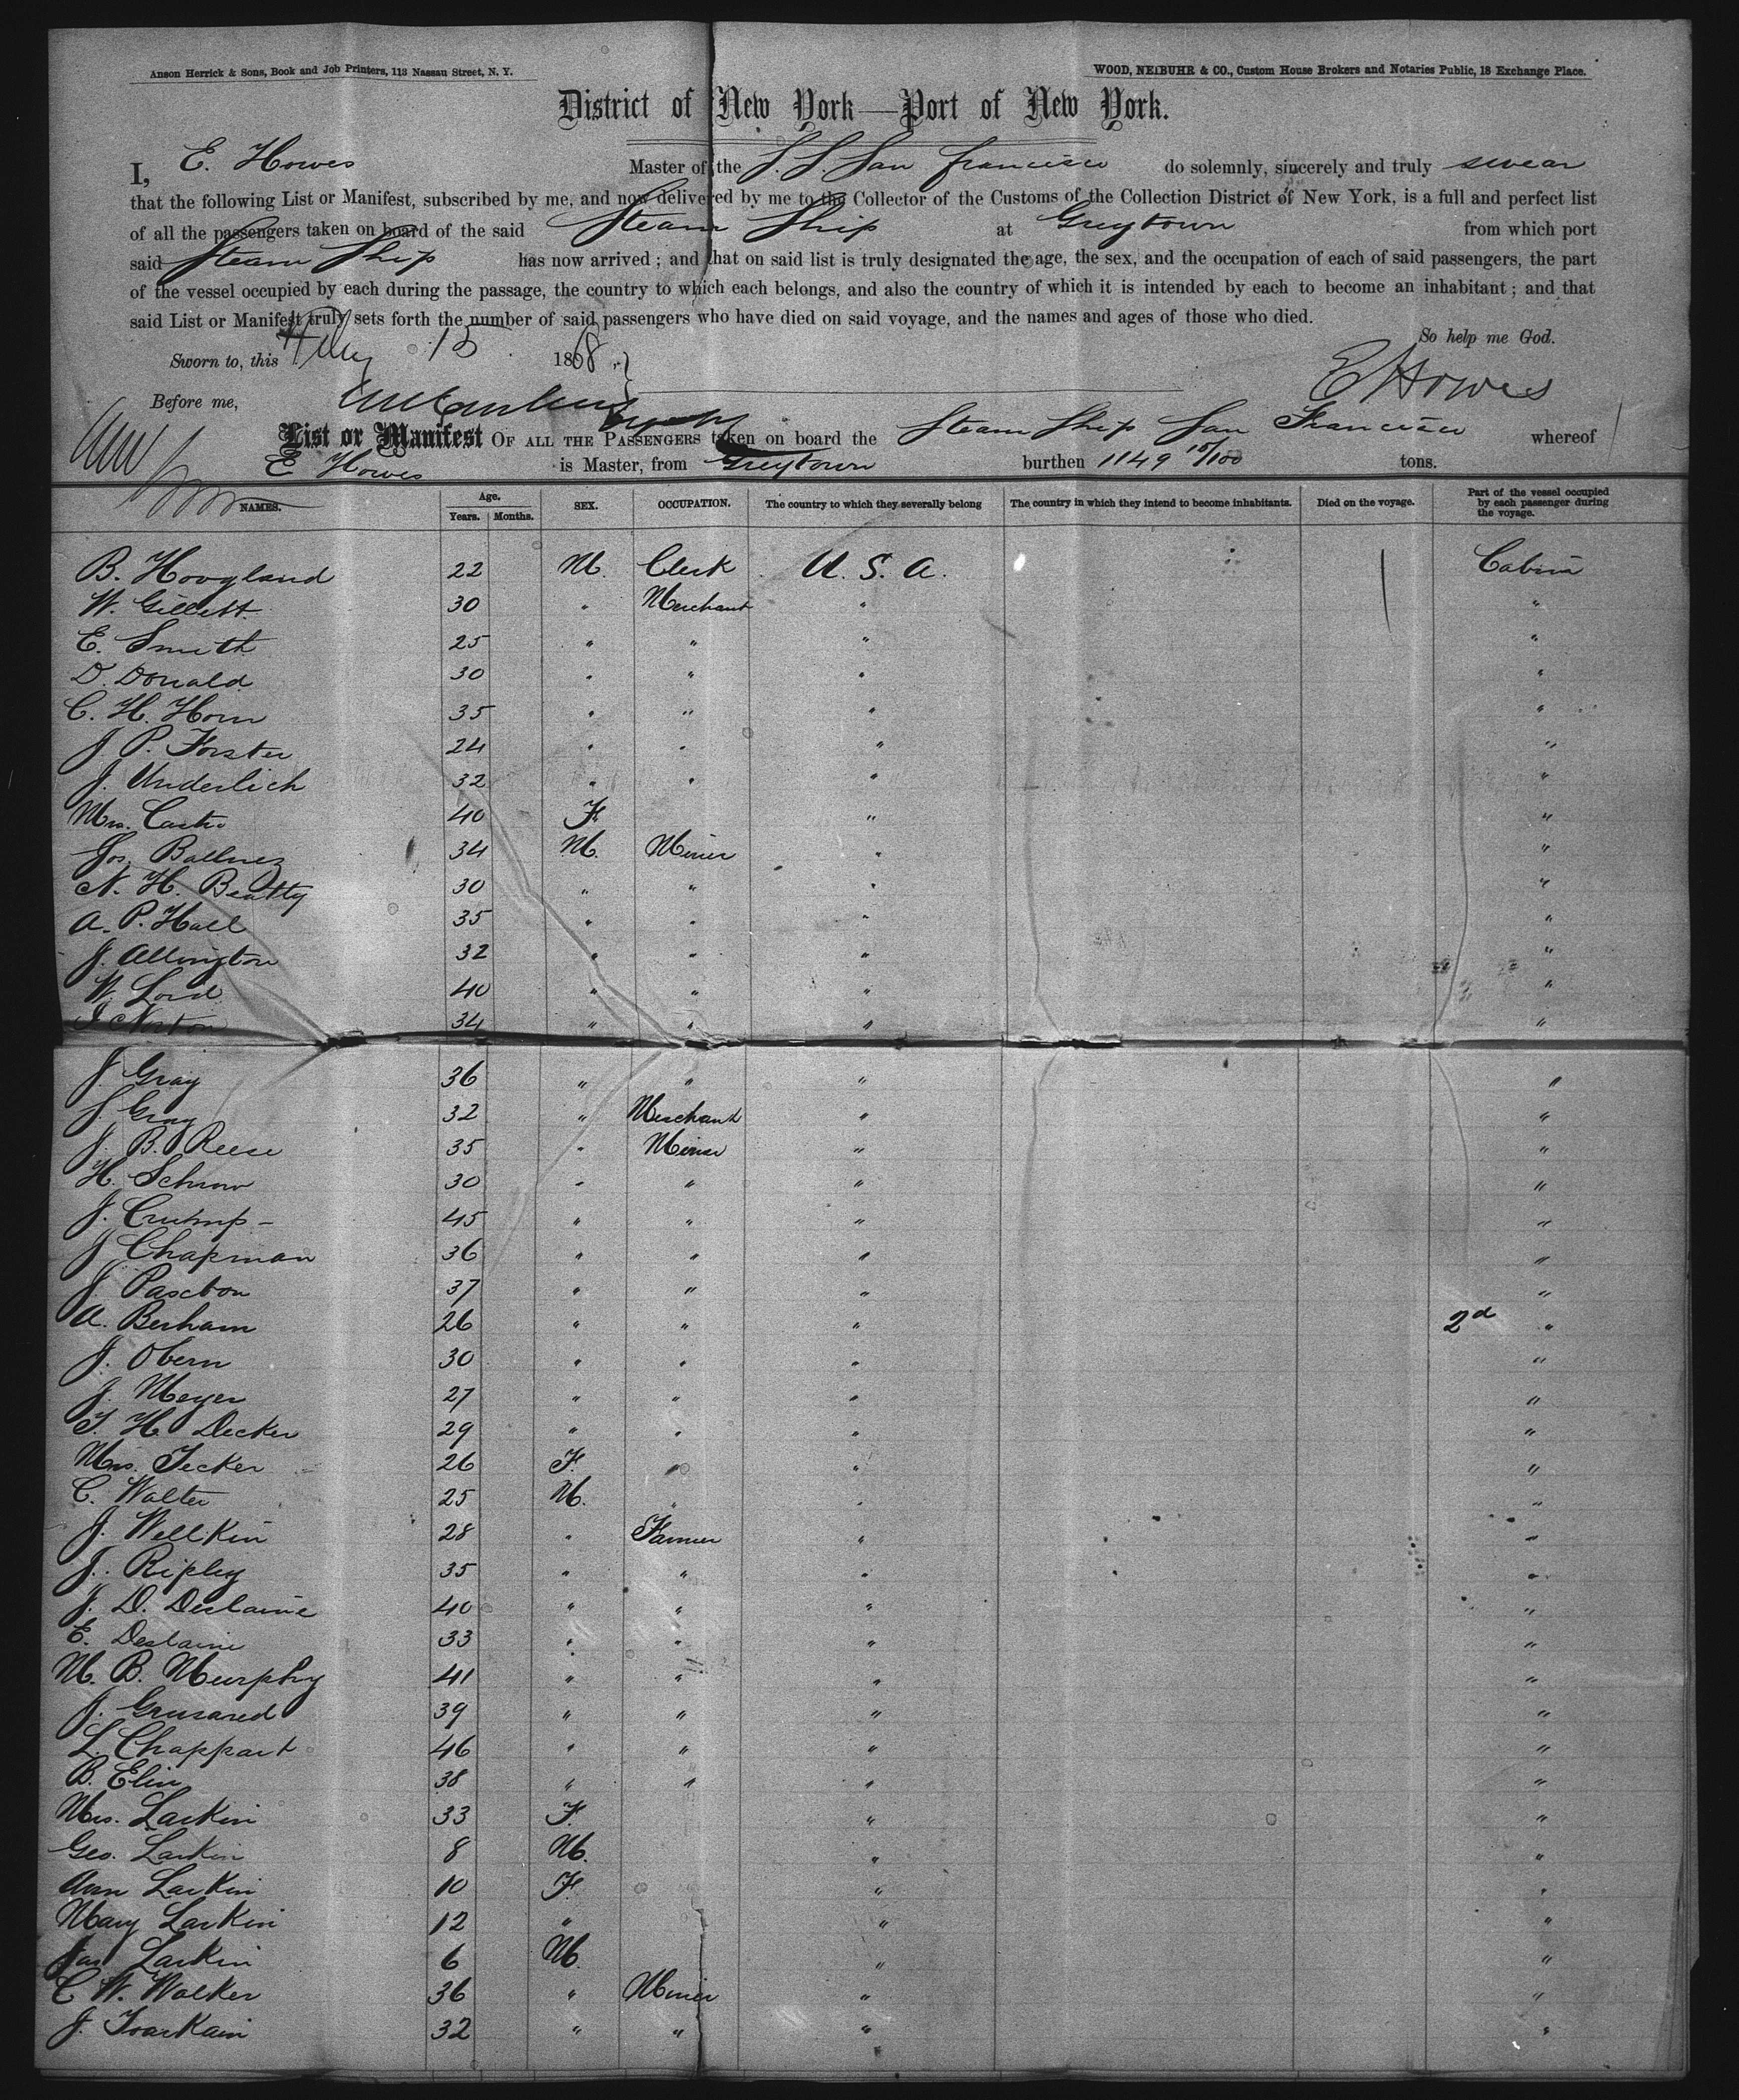 Anson Herrick & Sons, Book and Job Printers, 113 Nassau Street, N. Y. WOOD, NEIBUHR & CO., Custom House Brokers and Notaries Public, 18 Exchange Place.
District of New York—Port of New York.
I, E. Howes Master of the S. S. San francisco do solemnly, sincerely and truly swear
that the following List or Manifest, subscribed by me, and now delivered by me to the Collector of the Customs of the Collection District of New York, is a full and perfect list
of all the passengers taken on board of the said Steam Ship at Greytown from which port
said Steam Ship has now arrived; and that on said list is truly designated the age, the sex, and the occupation of each of said passengers, the part
of the vessel occupied by each during the passage, the country to which each belongs, and also the country of which it is intended by each to become an inhabitant; and that
said List or Manifest truly sets forth the number of said passengers who have died on said voyage, and the names and ages of those who died.
So help me God.
Sworn to, this 13 1868
Before me, E Howes
List or Manifest OF ALL THE PASSENGERS taken on board the Steam Ship San Francisco whereof
E Howes is Master, from Greytown burthen 1149 15/100 tons.
NAMES. Age. Years. Months. SEX. OCCUPATION. The country to which they severally belong The country in which they intend to become inhabitants. Died on the voyage. Part of the vessel occupied by each passenger during the voyage.
B. Hoogland 22 M. Clerk U. S. A. Cabin
W. Gillett 30 " Merchant " "
E. Smith 25 " " " "
D. Donald 30 " " " "
C. H. Horn 35 " " " "
J. P. Forster 24 " " " "
J. Underlich 32 " " " "
Mrs. Castro 40 F. " "
Jos. 34 M. Miner " "
N. H. Beatty 30 " " " "
A. P. Hall 35 " " " "
J. Allington 32 " " " "
W. Lord 40 " " " "
J Norton 34 " " " "
J. Gray 36 " " " "
J. Gray 32 " Merchant " "
J. B. Reese 35 " Miner " "
H. Schuno 30 " " " "
J. Crump 45 " " " "
J Chapman 36 " " " "
J. Paxcton 37 " " " "
A. Berham 26 " " " 2d "
J. Obern 30 " " " "
J. Meyer 27 " " " "
T. H Decker 29 " " " "
Mrs. Tecker 26 F. " " "
C. Walter 25 M. " " "
J. Wellkin 28 " Farmer " "
J. Ripley 35 " " " "
J. D. Deslaine 40 " " " "
E. Deslaine 33 " " " "
M. B. Murphy 41 " " " "
J. Grusared 39 " " " "
L. Chappart 46 " " " "
B. Elin 38 " " " "
Mrs. Larkin 33 F. " "
Geo. Larkin 8 M. " "
Ann Larkin 10 F. " "
Mary Larkin 12 " " "
Jas Larkin 6 M. " "
C W. Walker 36 " Miner " "
J. 32 " " " "